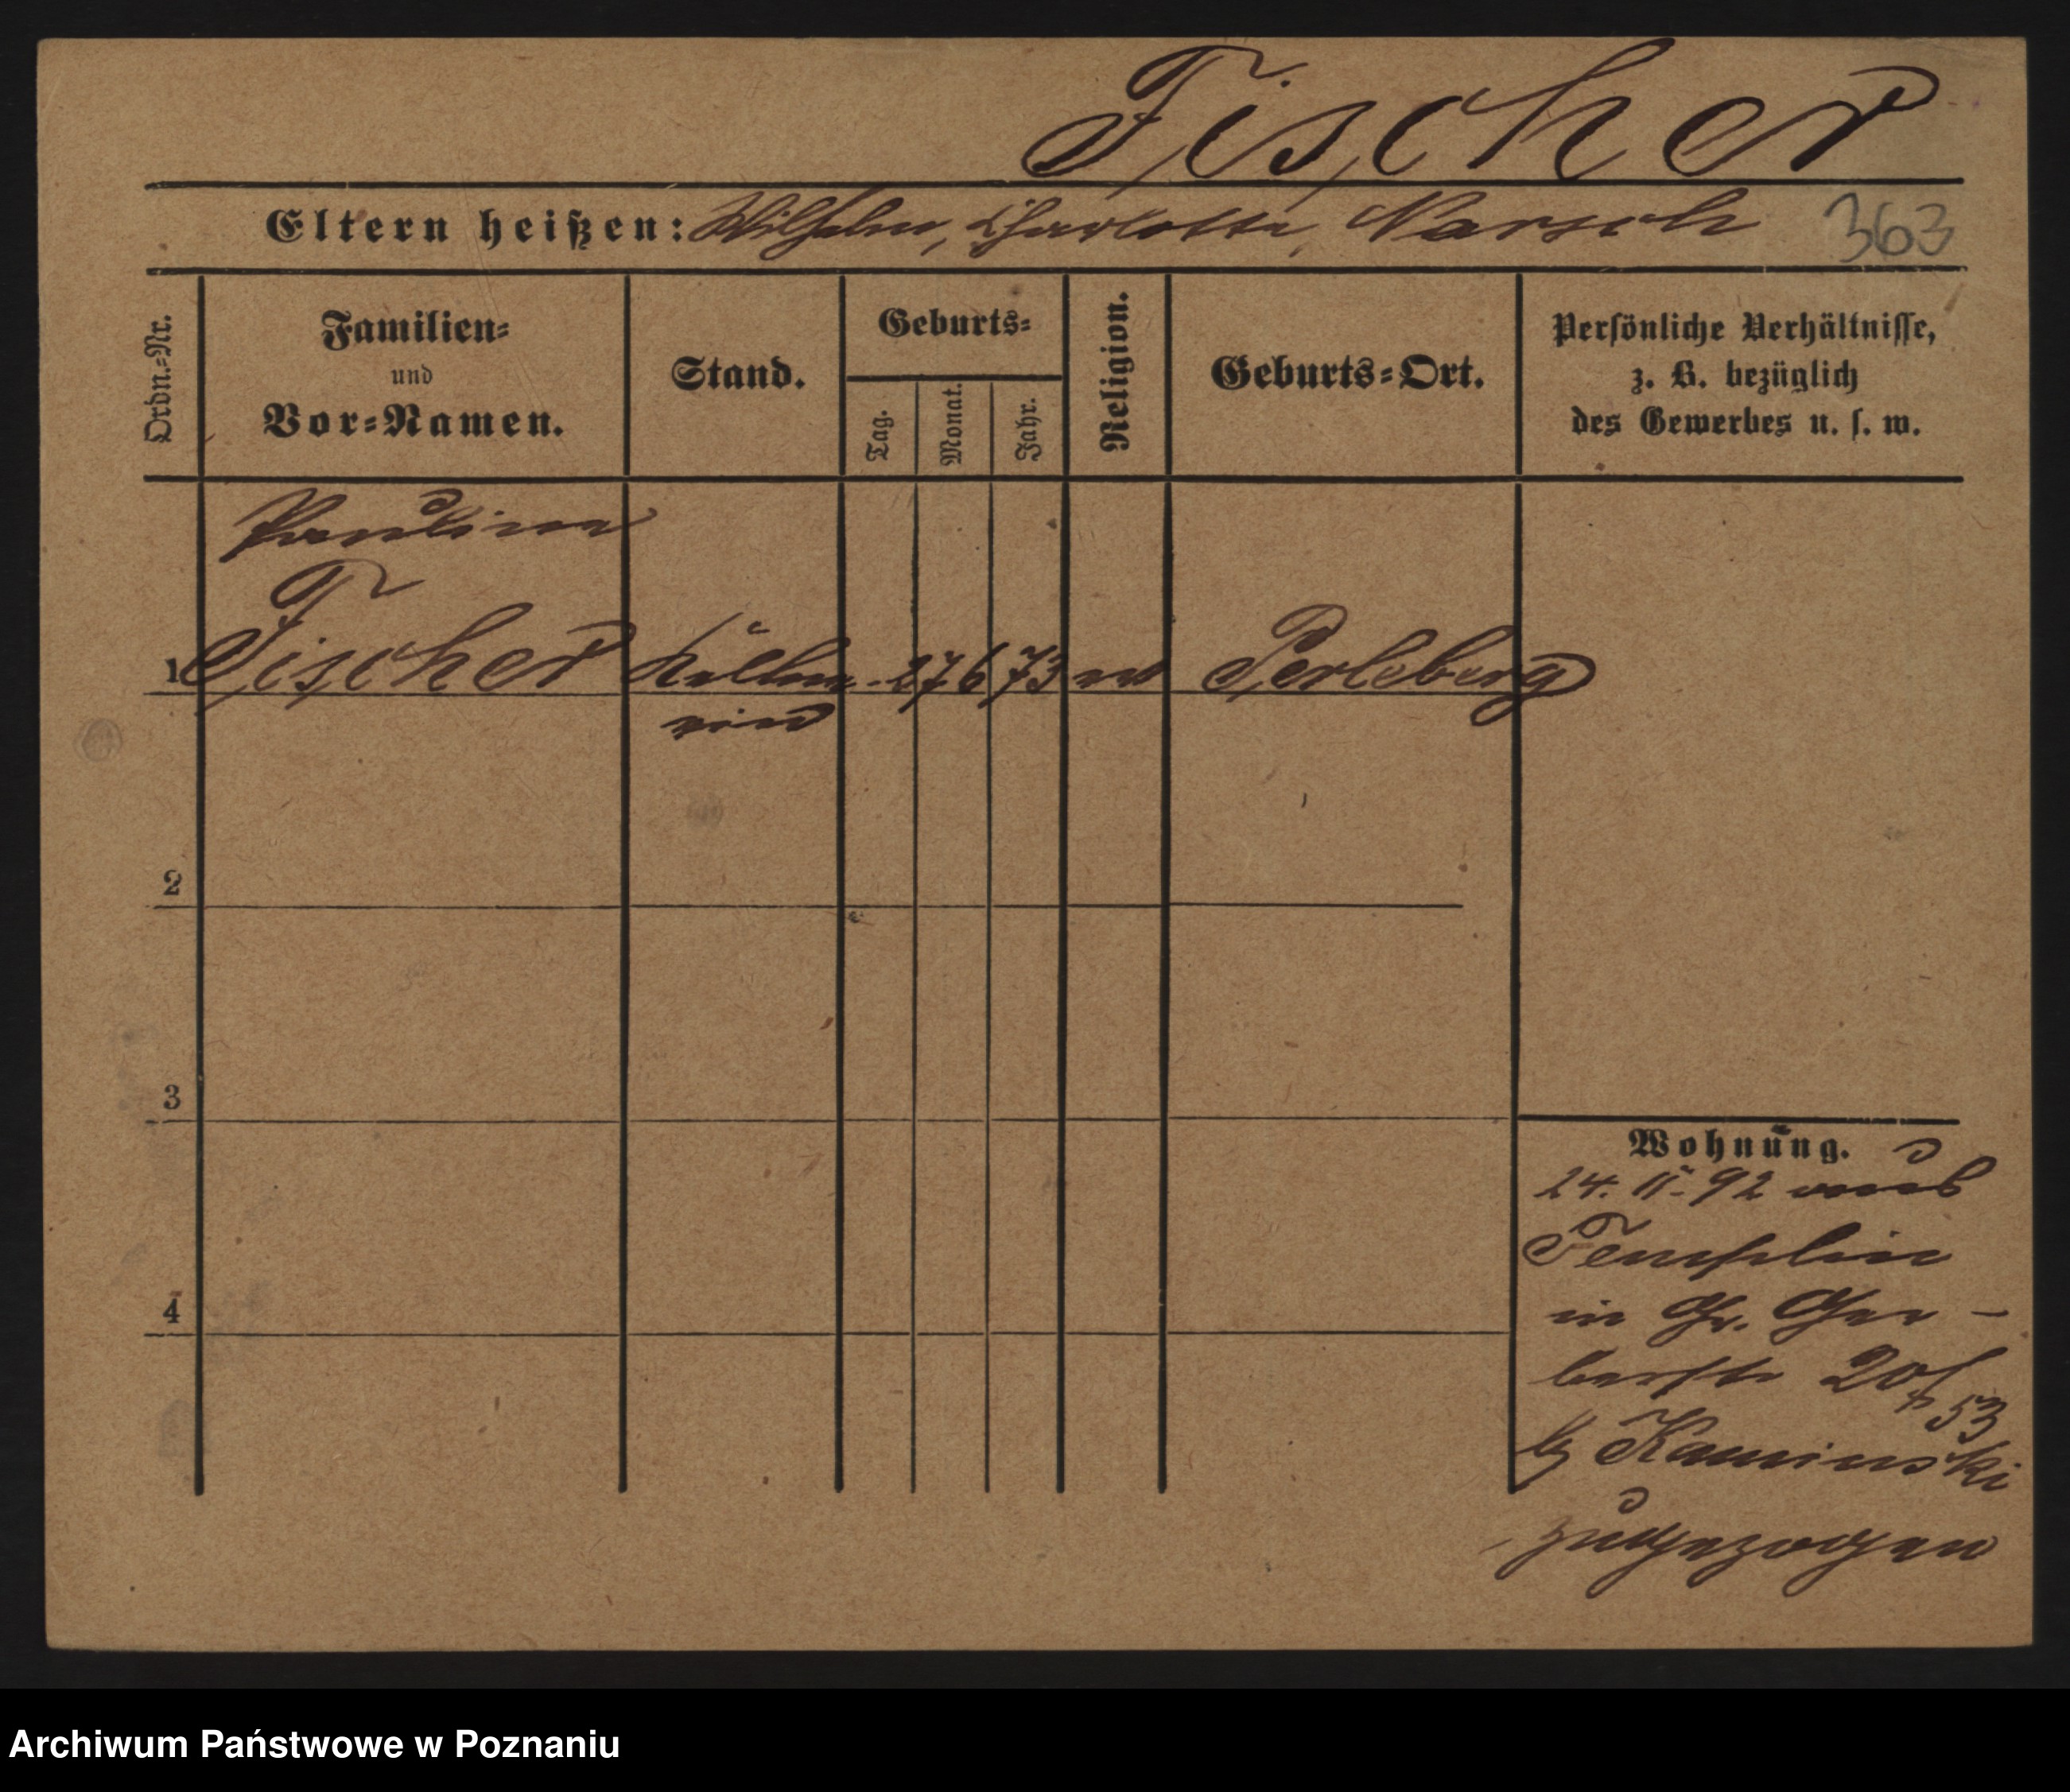 Fischer
Eltern heißen: Wilhelm, Charlotte, Narsch 363
Ordn.-Nr.
Familien-
und
Vor-Namen.
Stand.
Geburts-
Tag.
Monat.
Jahr.
Religion.
Geburts-Ort.
Persönliche Verhältnisse,
z. B. bezüglich
des Gewerbes u. s. w.
Pauline
1 Fischer Kellne 27 6 73 ev Perleberg
rin
2
3
4
Wohnung.
24. 11. 92 aus
Templin
in Gr. Ger-
berstr 20/
53
b/ Kaminski
zugezogen
Archiwum Państwowe w Poznaniu